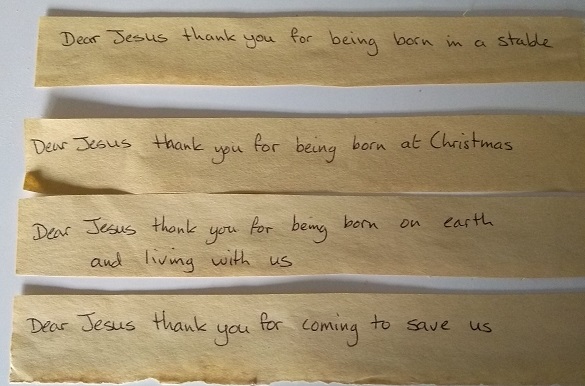 Dear Jesus thank you for being born in a stable
Dear Jesus thank you for being born at Christmas
Dear Jesus thank you for being born on earth
and living with us
Dear Jesus thank you for coming to save us